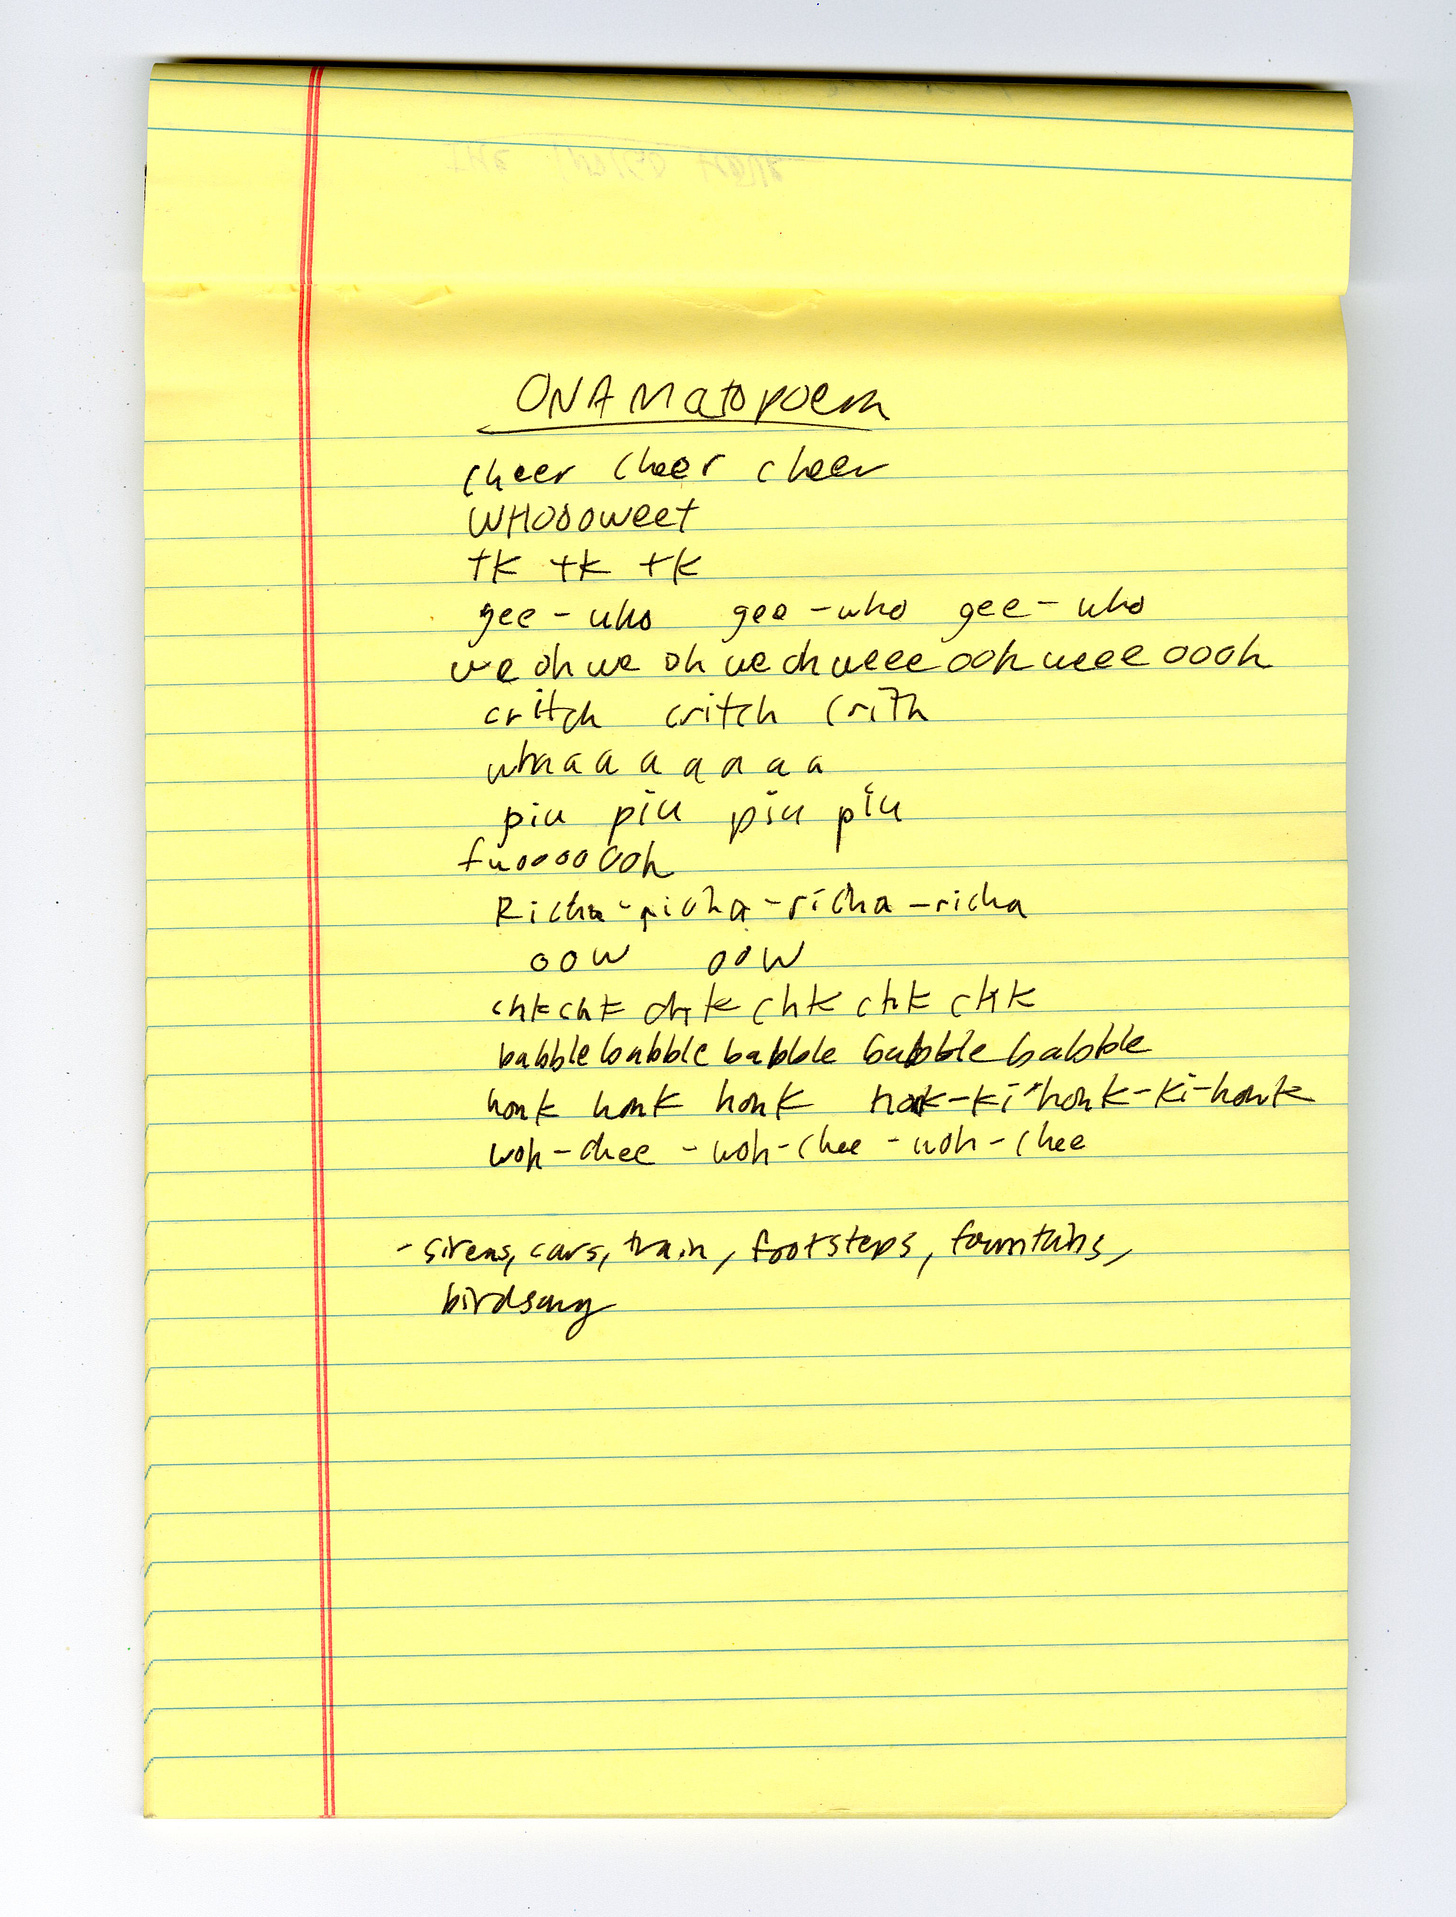 ONAMatopoem
cheer cheer cheer
WHOooweet
tk tk tk
gee-who gee-who gee-who
we oh we oh we oh weee ooh weee oooh
critch critch crith
whaa a a a a a a
piu piu piu piu
fuooooooh
Richa-richa-richa-richa
oow oow
chk chk chk chk chk chk
babble babble babble babble babble
honk honk honk honk-ki-honk-ki-honk
woh-chee-woh-chee-woh-chee
- sirens, cars, train, footsteps, fountains,
birdsong